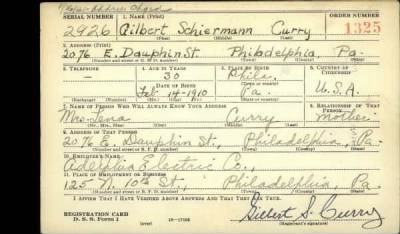 SERIAL NUMBER 1. NAME (Print) ORDER NUMBER
2926 Gilbert Schiermann Curry 1325
(First) (Middle) (Last)
2. ADDRESS (Print)
2076 E. Dauphin St. Philadelphia, Pa.
(Number and street or R. F. D. number) (Town) (County) (State)
3. TELEPHONE 4. AGE IN YEARS 5. PLACE OF BIRTH 6. COUNTRY OF CITIZENSHIP
30 Phila.
DATE OF BIRTH
Feb 14-1910 Pa. U.S.A.
7. NAME OF PERSON WHO WILL ALWAYS KNOW YOUR ADDRESS 8. RELATIONSHIP OF THAT PERSON
Mrs. Lena Curry mother
9. ADDRESS OF THAT PERSON
2076 E. Dauphin St., Philadelphia, Pa.
(Number and street or R. F. D. number) (Town) (County) (State)
10. EMPLOYER'S NAME
Adelphia Electric Co.,
11. PLACE OF EMPLOYMENT OR BUSINESS
125 N. 10th St., Philadelphia, Pa.
(Number and street or R. F. D. number) (Town) (County) (State)
I AFFIRM THAT I HAVE VERIFIED ABOVE ANSWERS AND THAT THEY ARE TRUE.
REGISTRATION CARD
D. S. S. Form 1 (over) 16-17105 Gilbert S. Curry
(Registrant's signature)